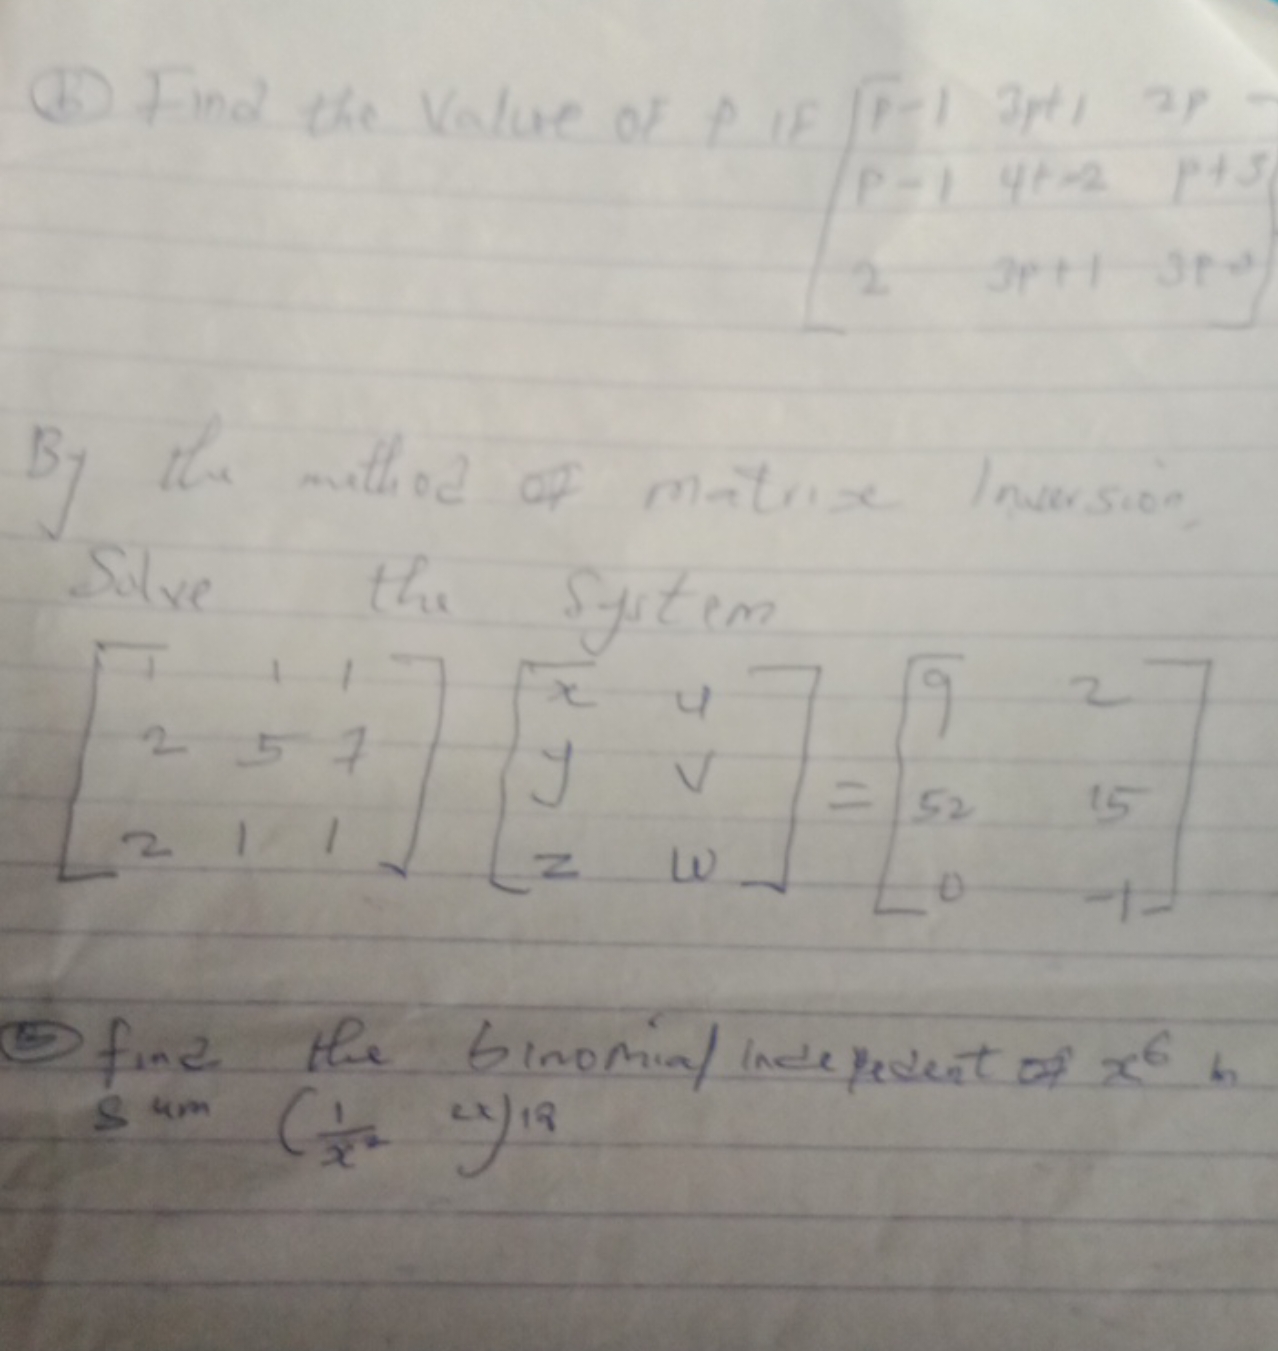 Find the Value of P if [P-1 3p+1 2p -
P-1 4p-2 p+3
2 3p+1 3p
By the method of matrix Inversion,
Solve the System
[1 1 1
2 5 7
2 1 1] [x u
y v
z w] = [9 2
52 15
0 -1]
find the binomial indepedent of x^6 in
sum (1/x^2 2x)18